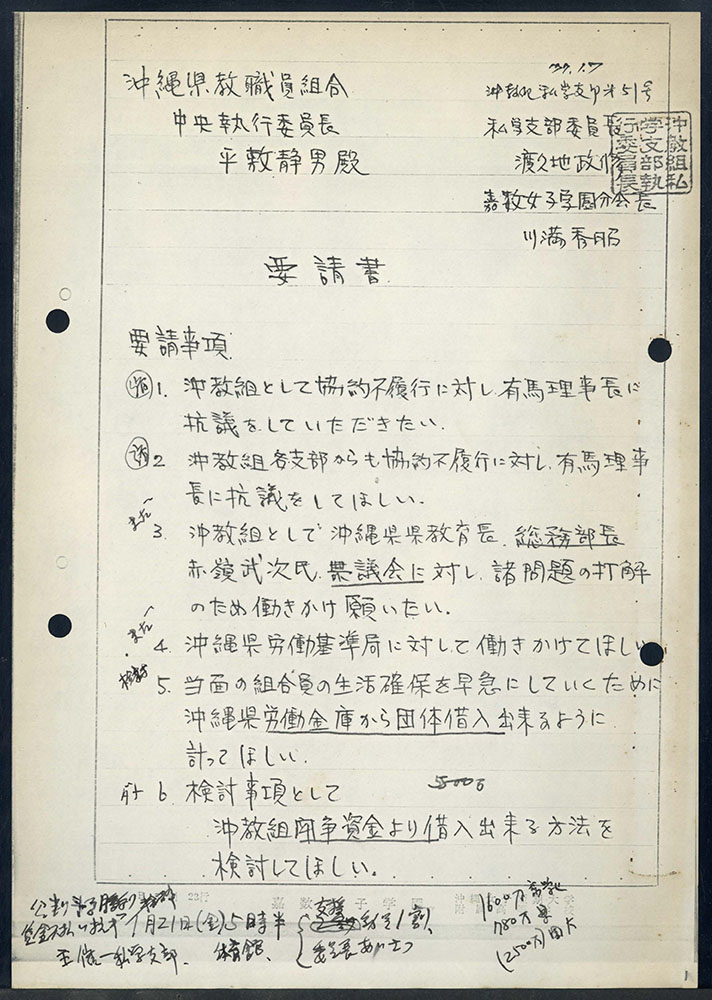 沖縄県教職員組合
中央執行委員長
平敷静男殿
沖教組私学支部
私学支部委員長
渡久地政
嘉数女子学園分会長
川満秀
沖教組私
学支部執
行委員長
要請書
要請事項
1. 沖教組として協約不履行に対し、有馬理事長に
抗議をしていただきたい。
2 沖教組各支部からも協約不履行に対し、有馬理事
長に抗議をしてほしい。
3. 沖教組として沖縄県県教育長、総務部長
赤嶺武次氏、県議会に対し、諸問題の打解
のため働きかけ願いたい。
4. 沖縄県労働基準局に対して働きかけてほしい
検討
5. 当面の組合員の生活確保を早急にしていくために
沖縄県労働金庫から団体借入出来るように
計ってほしい。
6 検討事項として
沖教組闘争資金より借入出来る方法を
検討してほしい。
23行
嘉数女子学園
1月21日(金)5時半
体育館、
私学支部、
支援
1割、
委員長あいさつ
1600万
780万
(2500万)
1